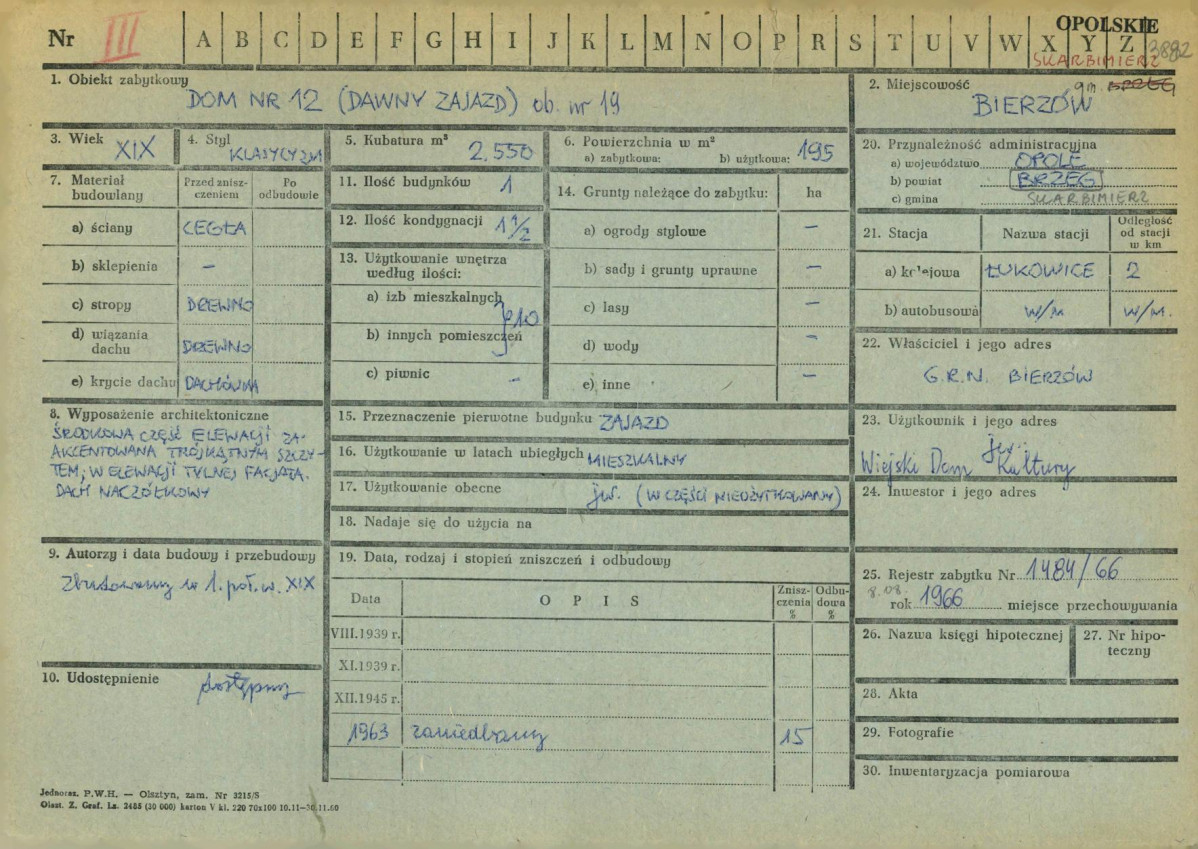 OPOLSKIE
Nr III A B C D E F G H I J K L M N O P R S T U V W X Y Z 3882
SKARBIMIERZ
1. Obiekt zabytkowy
DOM NR 12 (DAWNY ZAJAZD) ob. nr 19
2. Miejscowość gm.
BIERZÓW
3. Wiek XIX
4. Styl KLASYCYZM
5. Kubatura m³ 2.550
6. Powierzchnia w m²
a) zabytkowa: b) użytkowa: 195
20. Przynależność administracyjna
a) województwo OPOLE
b) powiat BRZEG
c) gmina SKARBIMIERZ
7. Materiał budowlany
Przed znisz-
czeniem
Po
odbudowie
a) ściany CEGŁA
b) sklepienia –
c) stropy DREWNO
d) wiązania
dachu DREWNO
e) krycie dachu DACHÓWKA
11. Ilość budynków 1
12. Ilość kondygnacji 1 1/2
13. Użytkowanie wnętrza
według ilości:
a) izb mieszkalnych
b) innych pomieszczeń } 10
c) piwnic –
14. Grunty należące do zabytku: ha
a) ogrody stylowe –
b) sady i grunty uprawne –
c) lasy –
d) wody –
e) inne –
21. Stacja Nazwa stacji
Odległość
od stacji
w km
a) kolejowa ŁUKOWICE 2
b) autobusowa w/m w/m.
22. Właściciel i jego adres
G.R.N. BIERZÓW
8. Wyposażenie architektoniczne
ŚRODKOWA CZĘŚĆ ELEWACJI ZA-
AKCENTOWANA TRÓJKĄTNYM SZCZY-
TEM, W ELEWACJI TYLNEJ FACJATA.
DACH NACZÓŁKOWY
15. Przeznaczenie pierwotne budynku ZAJAZD
16. Użytkowanie w latach ubiegłych MIESZKALNY
17. Użytkowanie obecne jw. (W CZĘŚCI NIEUŻYTKOWANY)
18. Nadaje się do użycia na
23. Użytkownik i jego adres
jw.
Wiejski Dom Kultury
24. Inwestor i jego adres
9. Autorzy i data budowy i przebudowy
Zbudowany w 1. poł. w. XIX
19. Data, rodzaj i stopień zniszczeń i odbudowy
Data OPIS
Znisz-
czenia
%
Odbu-
dowa
%
VIII.1939 r.
XI.1939 r.
XII.1945 r.
1963 zaniedbany 15
25. Rejestr zabytku Nr 1484/66
8.08.
rok 1966 miejsce przechowywania
26. Nazwa księgi hipotecznej
27. Nr hipo-
teczny
10. Udostępnienie dostępny
28. Akta
29. Fotografie
30. Inwentaryzacja pomiarowa
Jednoraz. P.W.H. — Olsztyn, zam. Nr 3215/S
Olszt. Z. Graf. Ls. 2405 (30 000) karton V kl. 220 70x100 10.11—30.11.60